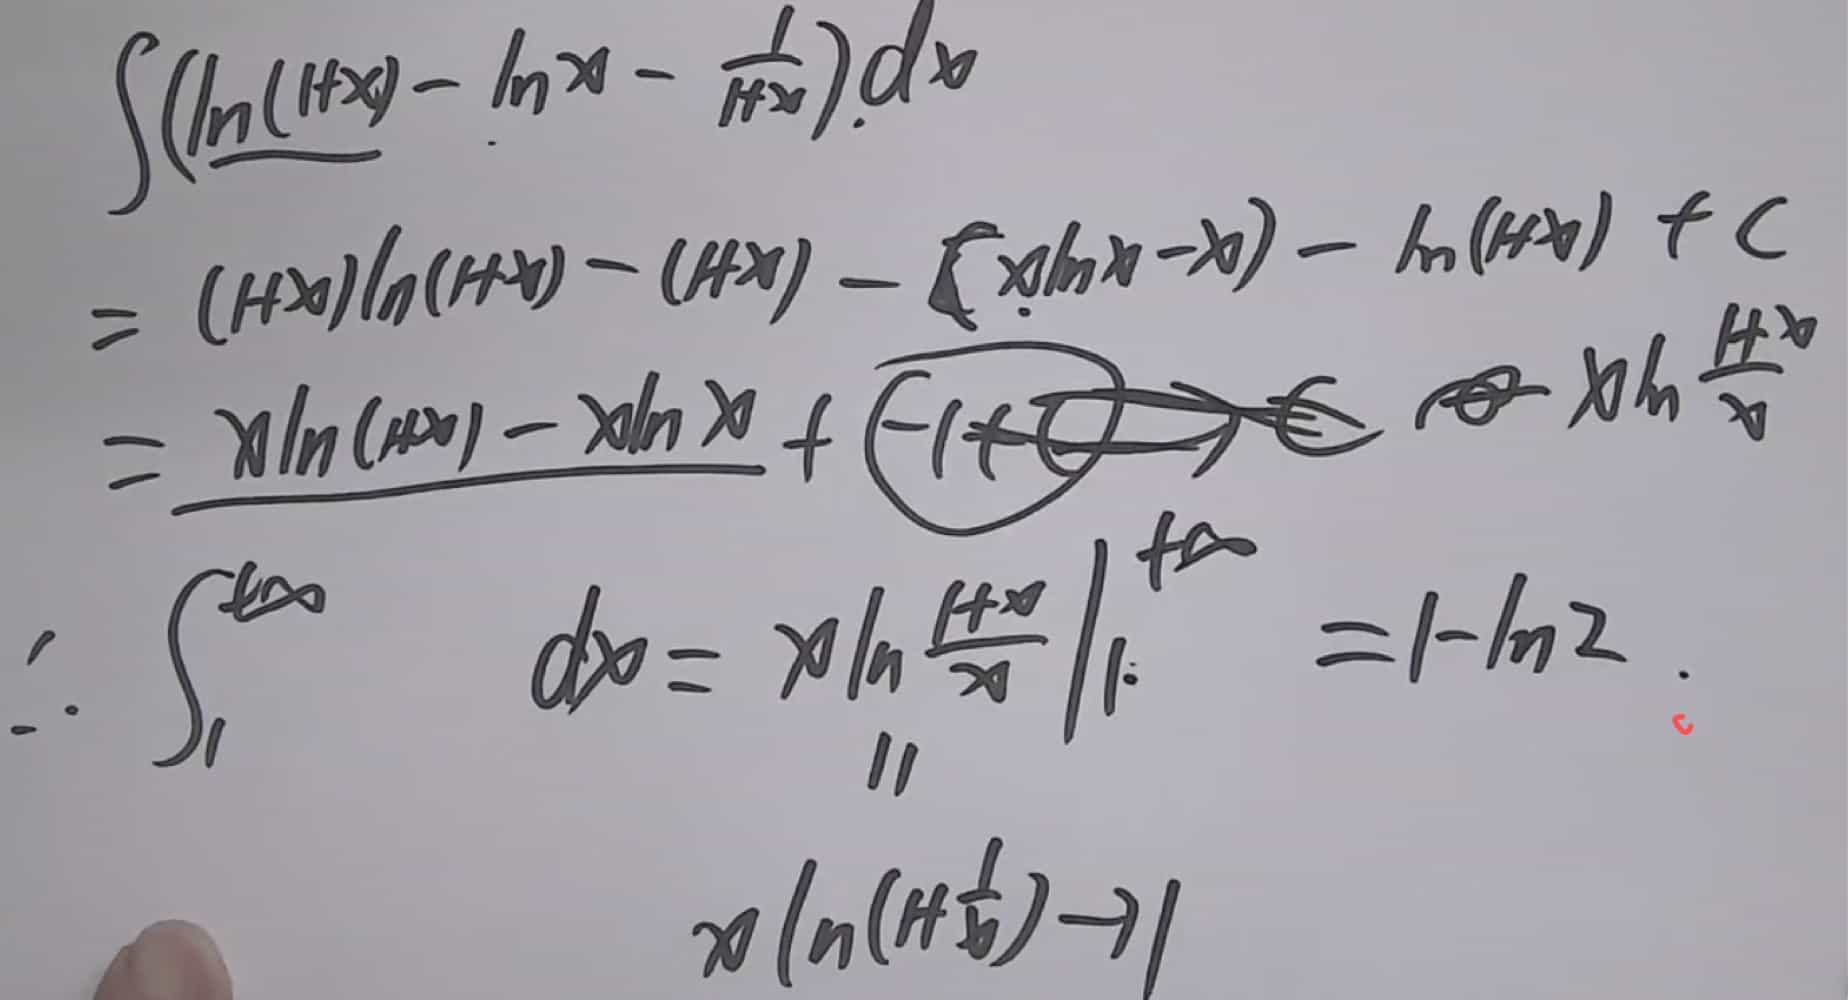 ∫(ln(1+x) - ln x - 1/(1+x)) dx
= (1+x)ln(1+x) - (1+x) - (x ln x - x) - ln(1+x) + C
= x ln(1+x) - x ln x + (-1+C) x ln (1+x)/x
∴ ∫₁^{+∞} dx = x ln (1+x)/x |₁^{+∞} = 1 - ln 2.
||
x ln(1+1/x) → 1